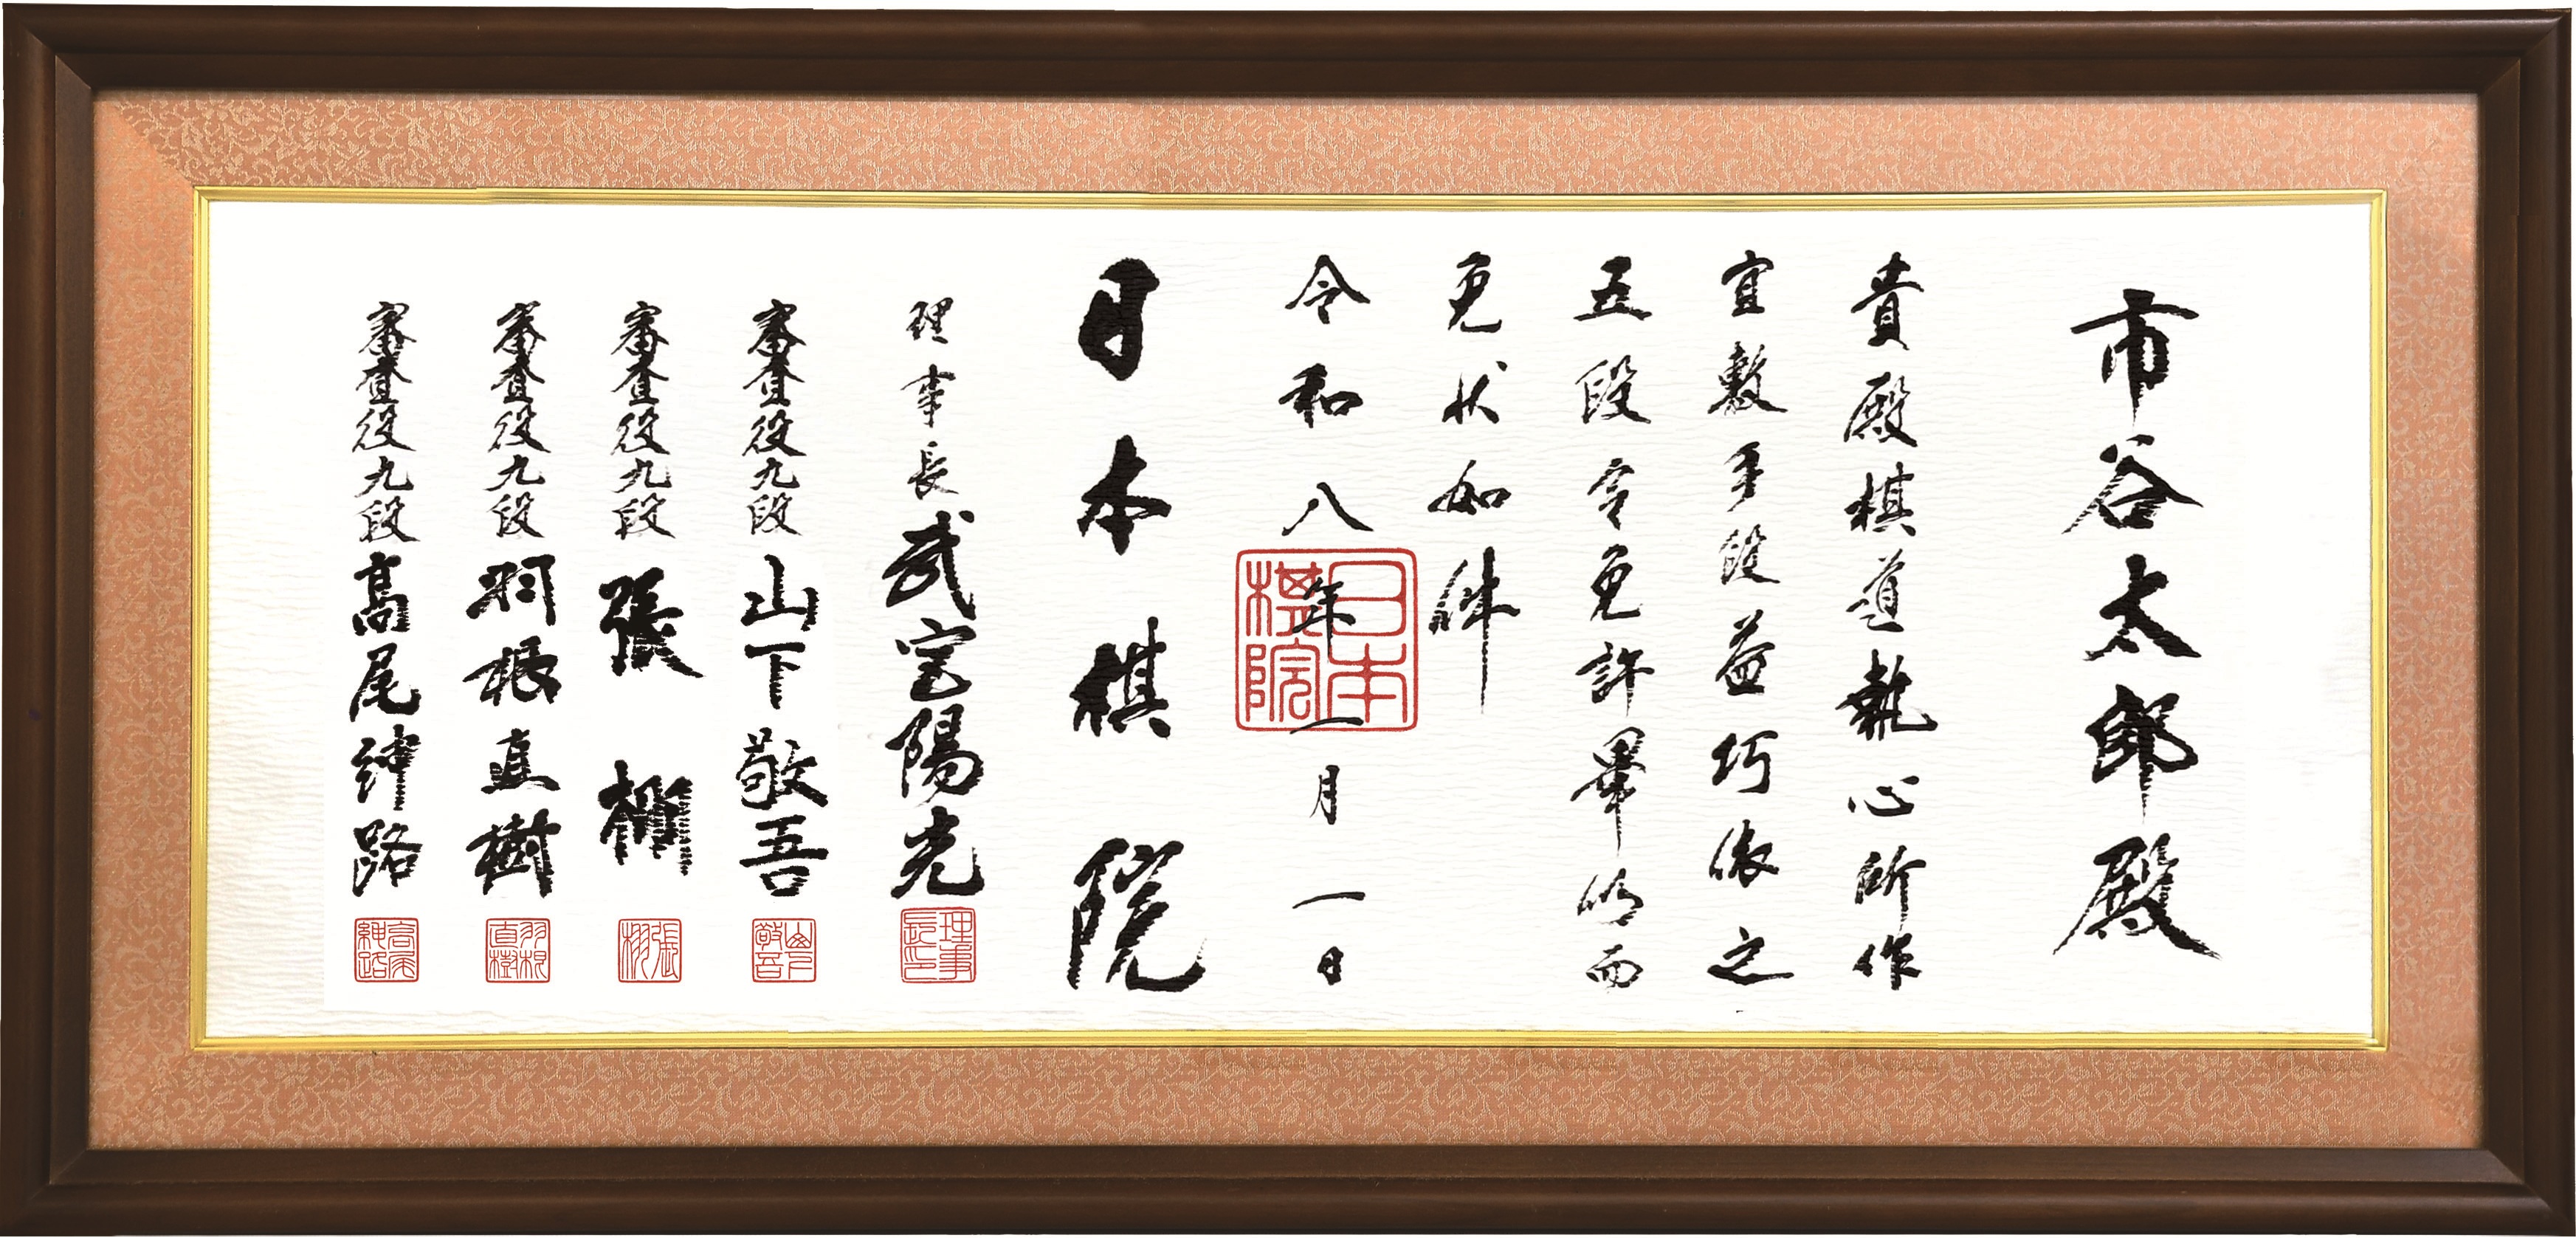 市谷太郎殿
貴殿棋道執心所作
宜敷手段益巧依之
五段令免許畢仍而
免状如件
令和八年一月一日
日本棋院
日本棋院
理事長武宮陽光
理事長印
審査役九段山下敬吾
山下敬吾
審査役九段張栩
張栩
審査役九段羽根直樹
羽根直樹
審査役九段高尾紳路
高尾紳路